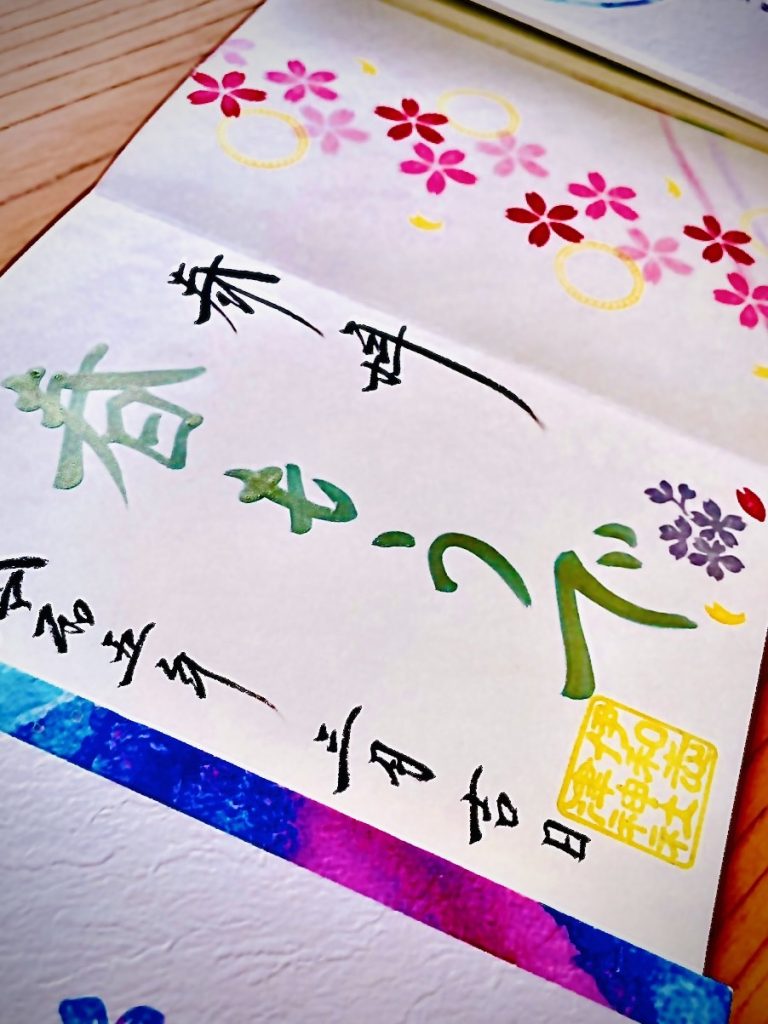 奉拝
春もうで
伊和志
津神社
令和五年 三月吉日